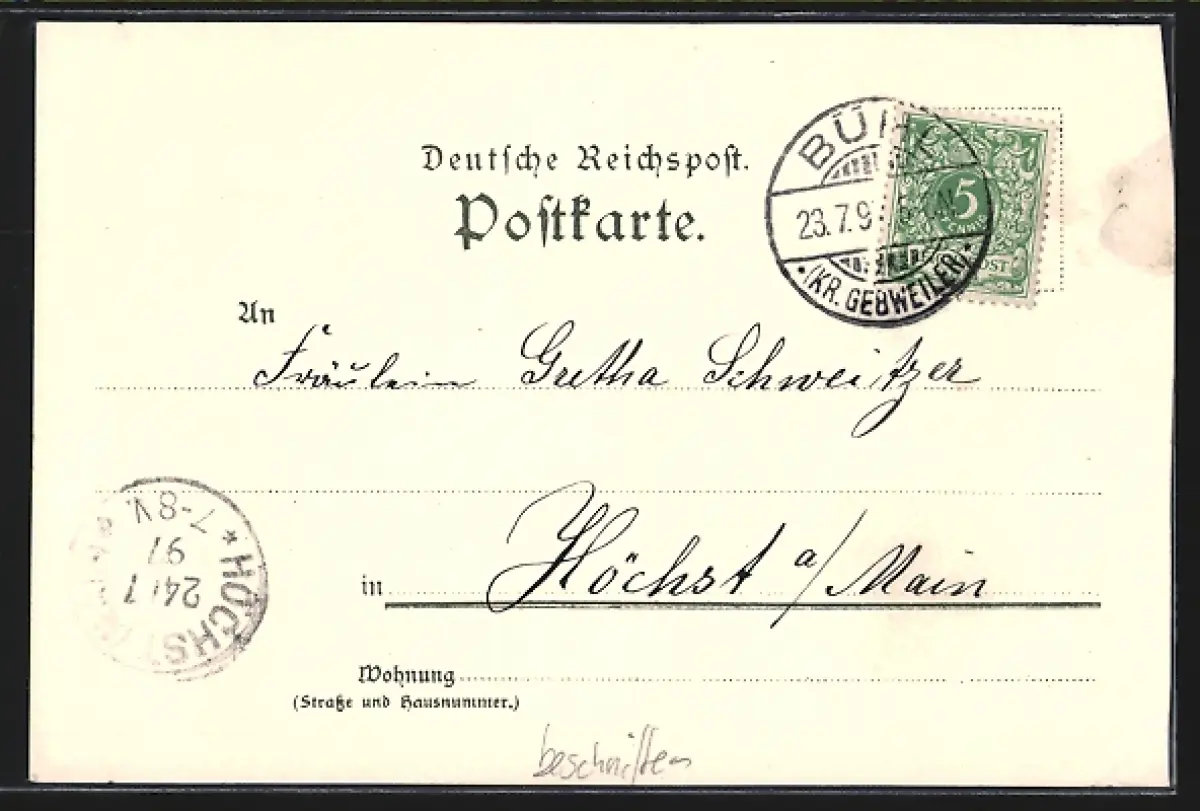 Deutsche Reichspost.
Postkarte.
BÜHL
23.7.97
(KR. GEBWEILER)
5
POST
An
Fräulein Gretha Schweitzer
in Höchst a/Main
HÖCHST
24 7
97
7-8V.
Wohnung
(Straße und Hausnummer.)
beschriften